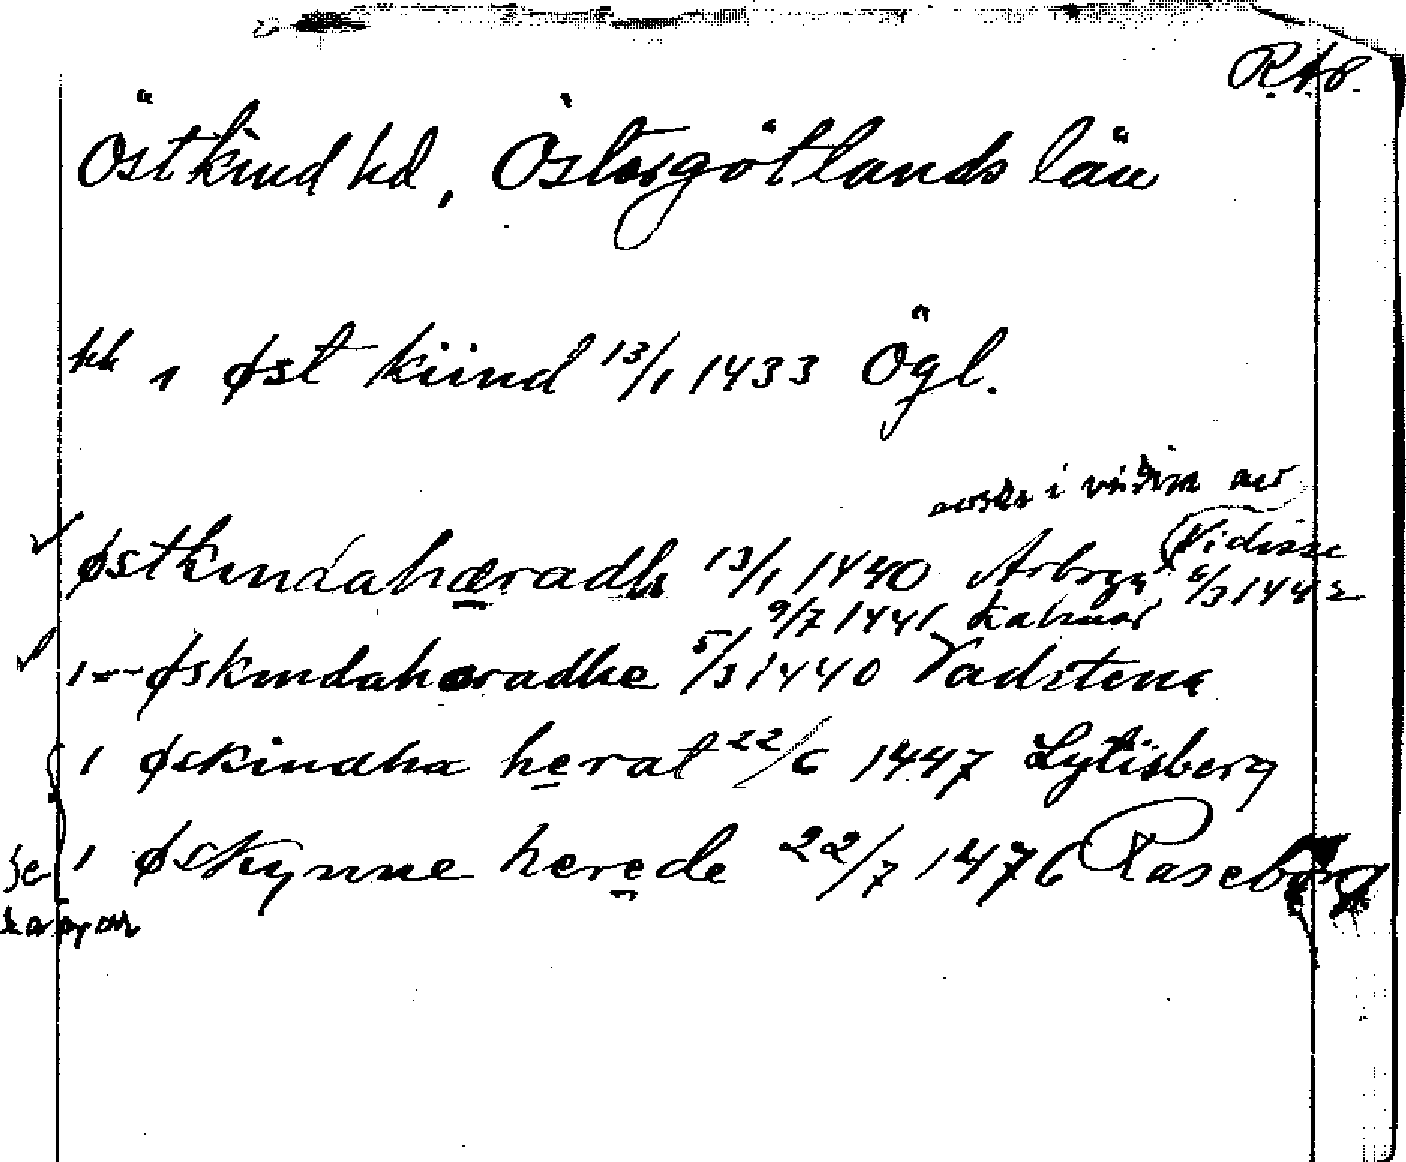 R.A.P.
Östkind hd, Östergötlands län
hk ı øst kiind 13/1 1433 Ögl.
avskr i vidim av
østkindahæradh 13/1 1440 Arboga Vidisse 6/3 1442
9/7 1441 Kalmar
ı øskindahæradhe 5/3 1440 Vadstena
ı øskindha herat 22/6 1447 Lytisberg
ı øskynne herede 22/7 1476 Raseborg
Se